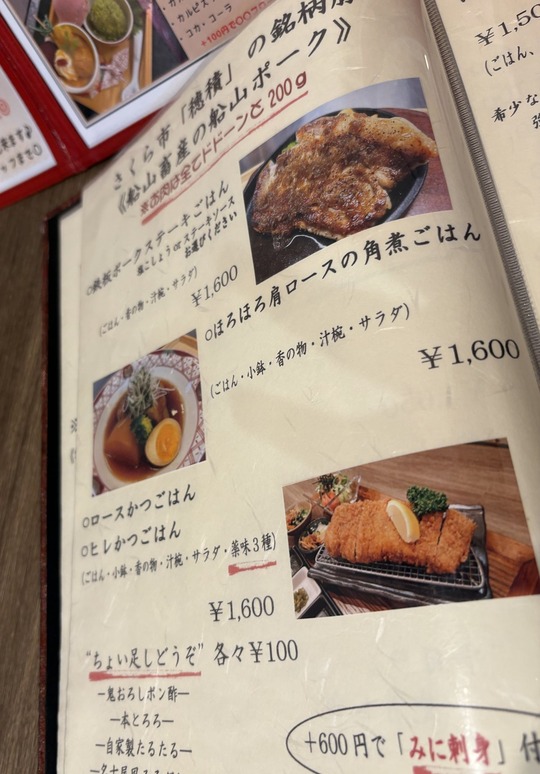 ・カルピス
・コカ・コーラ
さくら市「穂積」の銘柄
《船山畜産の船山ポーク》
※お肉は全てドドーンと200g
○鉄板ポークステーキごはん
塩こしょうorステーキソース
お選びください
(ごはん・香の物・汁椀・サラダ)
¥1,600
○ほろほろ肩ロースの角煮ごはん
(ごはん・小鉢・香の物・汁椀・サラダ)
¥1,600
○ロースかつごはん
○ヒレかつごはん
(ごはん・小鉢・香の物・汁椀・サラダ・薬味3種)
¥1,600
"ちょい足しどうぞ" 各々¥100
―鬼おろしポン酢―
―本とろろ―
―自家製たるたる―
+600円で「みに刺身」付
¥1,50
(ごはん、
希少な